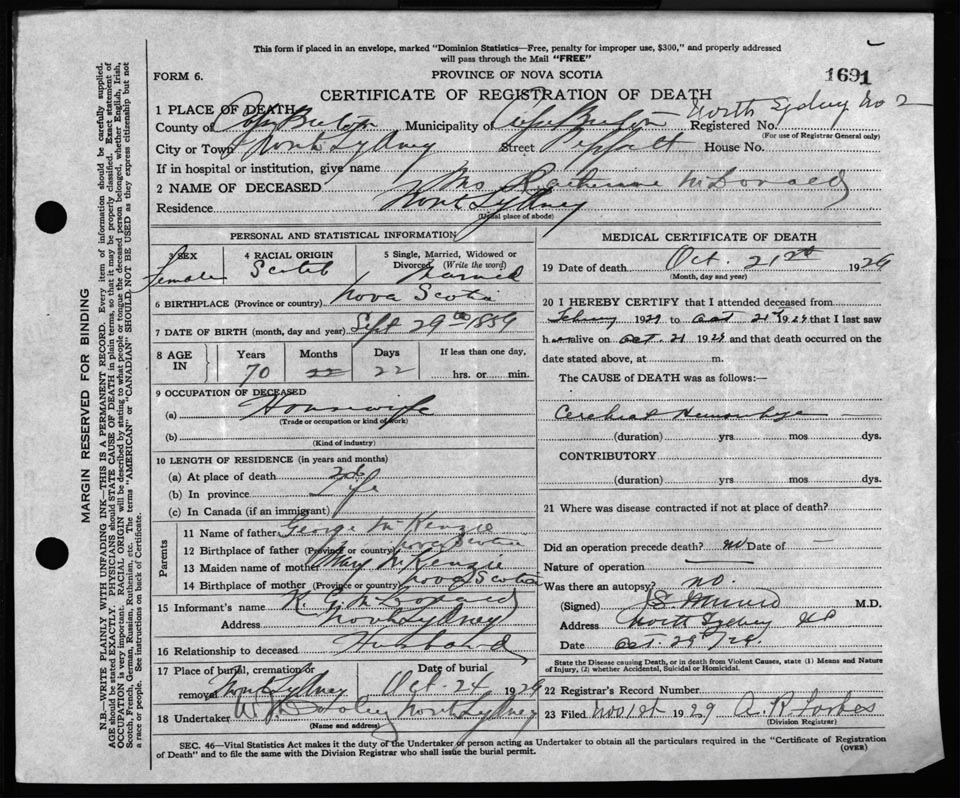 This form if placed in an envelope, marked "Dominion Statistics—Free, penalty for improper use, $300," and properly addressed
will pass through the Mail "FREE"
FORM 6.
PROVINCE OF NOVA SCOTIA
1691
CERTIFICATE OF REGISTRATION OF DEATH
North Sydney No 2
1 PLACE OF DEATH
County of Cape Breton Municipality of Cape Breton Registered No.
(For use of Registrar General only)
City or Town North Sydney Street House No.
If in hospital or institution, give name
2 NAME OF DECEASED Mrs Katherine McDonald
Residence North Sydney
(Usual place of abode)
PERSONAL AND STATISTICAL INFORMATION
3 SEX Female
4 RACIAL ORIGIN Scotch
5 Single, Married, Widowed or Divorced (Write the word) Married
6 BIRTHPLACE (Province or country) Nova Scotia
7 DATE OF BIRTH (month, day and year) Sept 29th 1859
8 AGE IN Years 70 Months 22 Days 22 If less than one day, hrs. or min.
9 OCCUPATION OF DECEASED
(a) Housewife
(Trade or occupation or kind of work)
(b)
(Kind of industry)
10 LENGTH OF RESIDENCE (in years and months)
(a) At place of death Life
(b) In province
(c) In Canada (if an immigrant)
Parents
11 Name of father George McKenzie
12 Birthplace of father (Province or country) Nova Scotia
13 Maiden name of mother Mary McKenzie
14 Birthplace of mother (Province or country) Nova Scotia
15 Informant's name McDonald
Address North Sydney
16 Relationship to deceased Husband
17 Place of burial, cremation or removal North Sydney Date of burial Oct 24 1929
18 Undertaker North Sydney
(Name and address)
MEDICAL CERTIFICATE OF DEATH
19 Date of death Oct. 21st 1929
(Month, day and year)
20 I HEREBY CERTIFY that I attended deceased from
1929 to Oct 21st 1929 that I last saw
her alive on Oct. 21 1929 and that death occurred on the
date stated above, at m.
The CAUSE of DEATH was as follows:—
Cerebral Hemorrhage
(duration) yrs. mos. dys.
CONTRIBUTORY
(duration) yrs. mos. dys.
21 Where was disease contracted if not at place of death?
Did an operation precede death? no Date of —
Nature of operation —
Was there an autopsy? no.
(Signed) M.D.
Address North Sydney
Date Oct. 29th/29.
State the Disease causing Death, or in death from Violent Causes, state (1) Means and Nature
of Injury, (2) whether Accidental, Suicidal or Homicidal.
22 Registrar's Record Number
23 Filed Nov 1st 1929 A. R. Forbes
(Division Registrar)
SEC. 46—Vital Statistics Act makes it the duty of the Undertaker or person acting as Undertaker to obtain all the particulars required in the "Certificate of Registration
of Death" and to file the same with the Division Registrar who shall issue the burial permit.
(OVER)
MARGIN RESERVED FOR BINDING
N.B.—WRITE PLAINLY WITH UNFADING INK—THIS IS A PERMANENT RECORD. Every item of information should be carefully supplied.
AGE should be stated EXACTLY. PHYSICIANS should STATE CAUSE OF DEATH in plain terms, so that it may be properly classified. Exact statement of
OCCUPATION is very important. RACIAL ORIGIN will be described by stating to what people or tongue the deceased person belonged, whether English, Irish,
Scotch, French, German, Russian, Ruthenian, etc. The terms "AMERICAN" or "CANADIAN" SHOULD NOT BE USED as they express citizenship but not
a race or people. See instructions on back of Certificate.